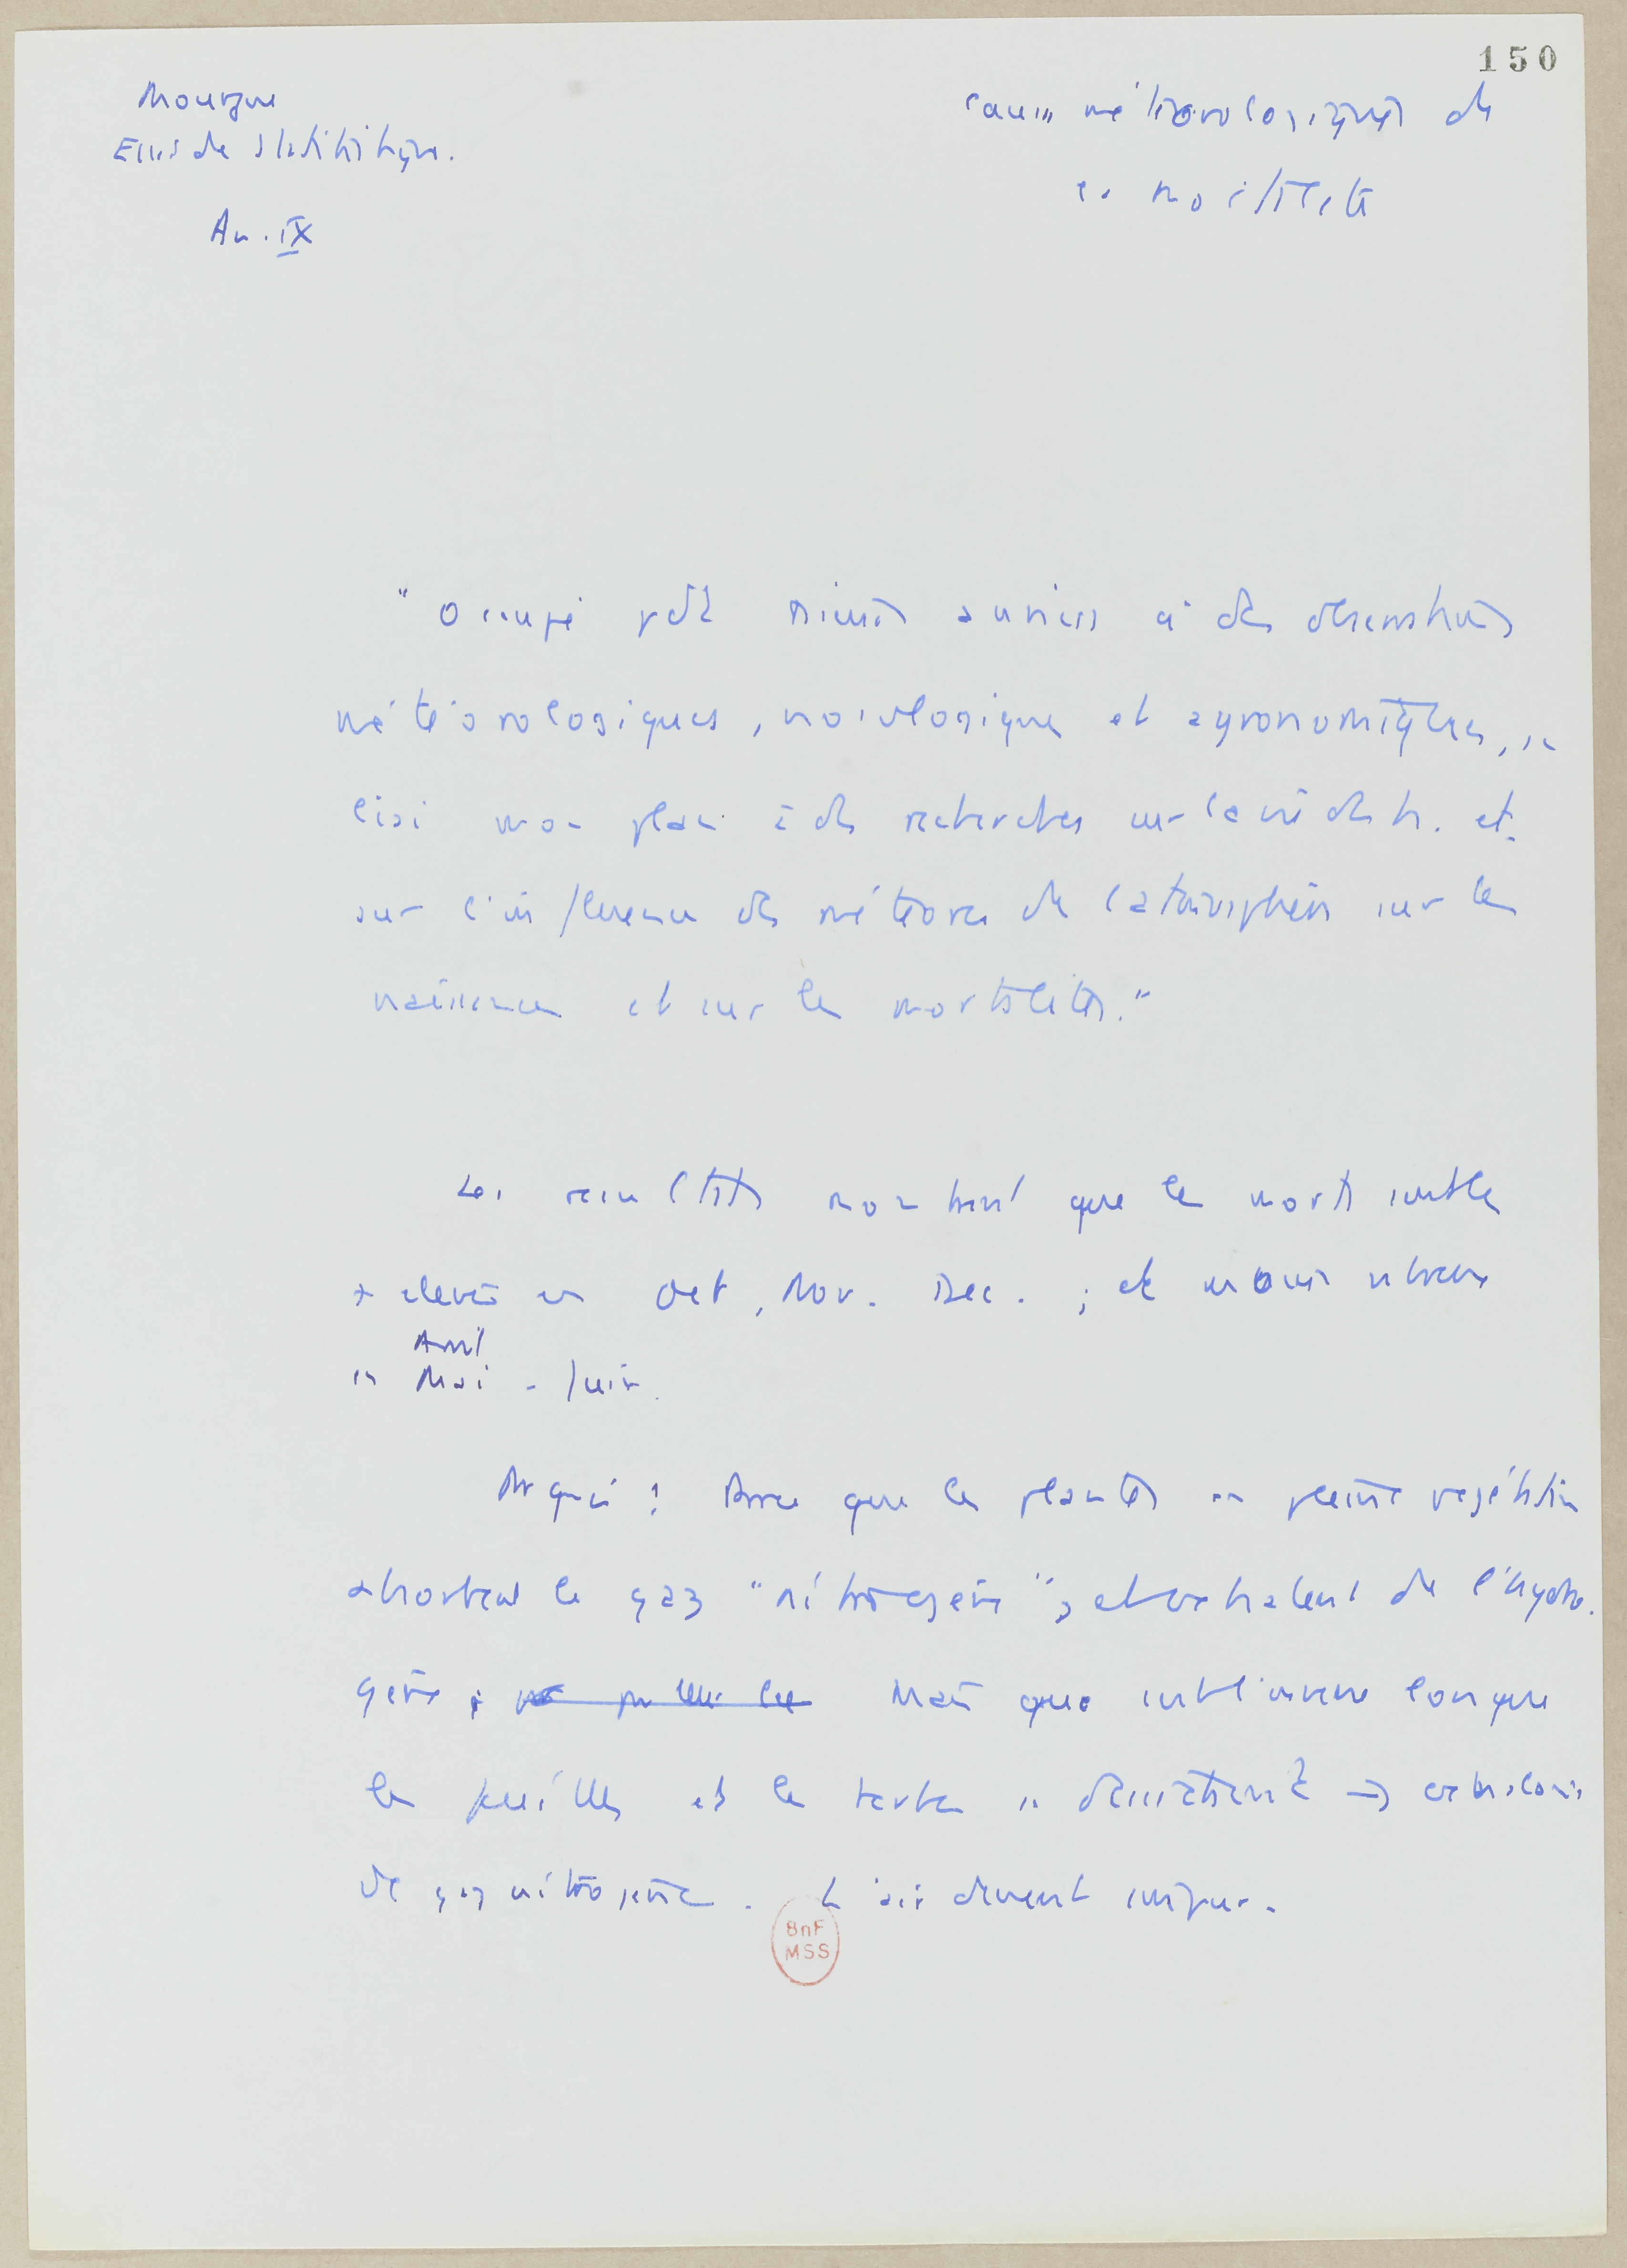 150
Mourgue
Essai de statistique.
An. IX
Causes météorologiques de
la mortalité
"Occupé pdt plusieurs années à des observations
météorologiques, nosologiques et agronomiques, je
liai mon plan à des recherches sur la vie des h. et
sur l'influence des météores de l'atmosphère sur les
naissances et sur les mortalités."
Les résultats montrent que les morts sont les
+ élevées en Oct, Nov. Dec. ; et moins nbreuses
Avril
en Mai - Juin.
Pr quoi ? Parce que les plantes en pleine végétation
absorbent le gaz "nitrogène", et exhalent de l'hydro.
gène ; Mais que sub l'hiver lorsque
les feuilles et les herbes se
de gaz nitrogène. L'air devient impur.
BnF
MSS